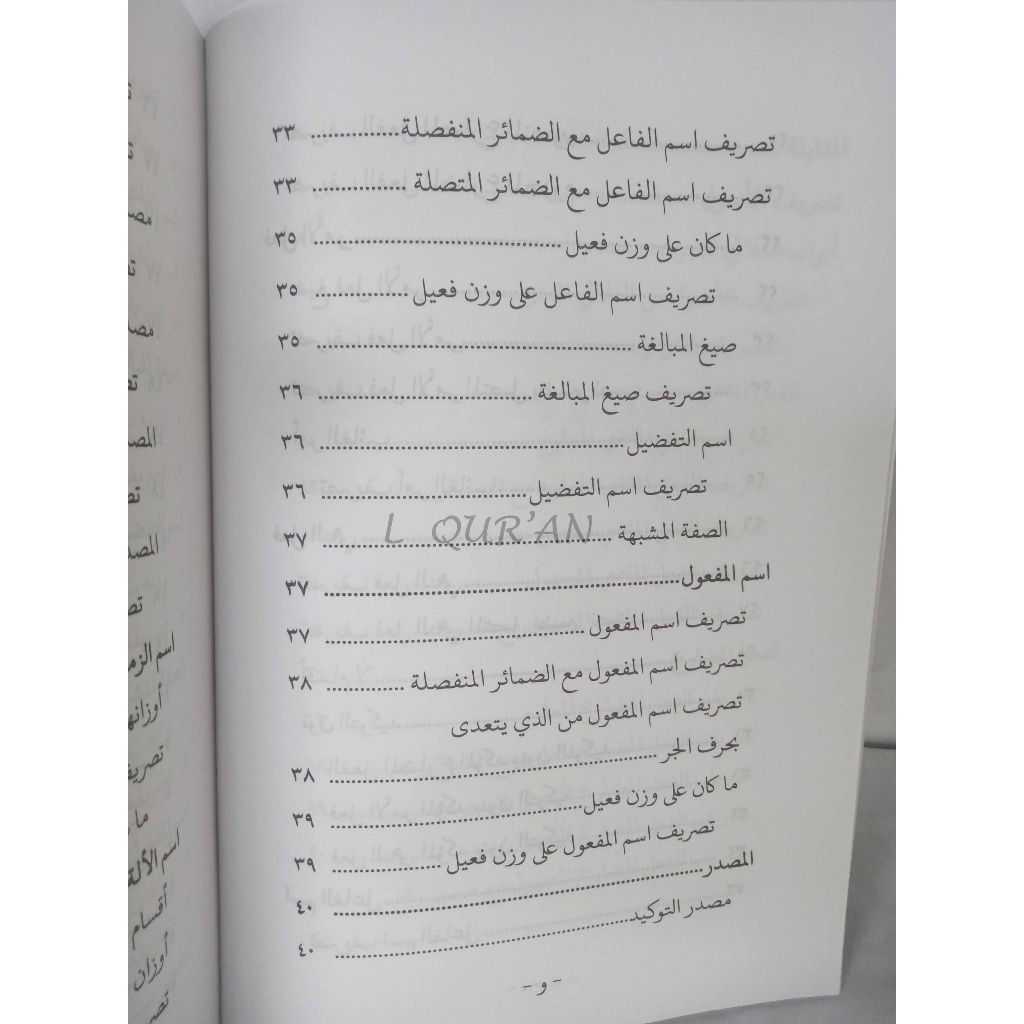 تصريف اسم الفاعل مع الضمائر المنفصلة............... ٣٣
تصريف اسم الفاعل مع الضمائر المتصلة ............... ٣٣
ما كان على وزن فعيل ........................................ ٣٥
تصريف اسم الفاعل على وزن فعيل ............... ٣٥
صيغ المبالغة .................................................... ٣٥
تصريف صيغ المبالغة ................................... ٣٦
اسم التفضيل .................................................. ٣٦
تصريف اسم التفضيل .................................. ٣٦
الصفة المشبهة ................................................ ٣٧
L QUR'AN
اسم المفعول............................................................ ٣٧
تصريف اسم المفعول ......................................... ٣٧
تصريف اسم المفعول مع الضمائر المنفصلة ............. ٣٨
تصريف اسم المفعول من الذي يتعدى
بحرف الجر ..................................................... ٣٨
ما كان على وزن فعيل......................................... ٣٩
تصريف اسم المفعول على وزن فعيل .................. ٣٩
المصدر............................................................ ٤٠
مصدر التوكيد.................................................. ٤٠
- و -
مصد
المصد
المصد
اسم الزم
أوزانه
تصريف
اسم الألة
أقسام
أوزان